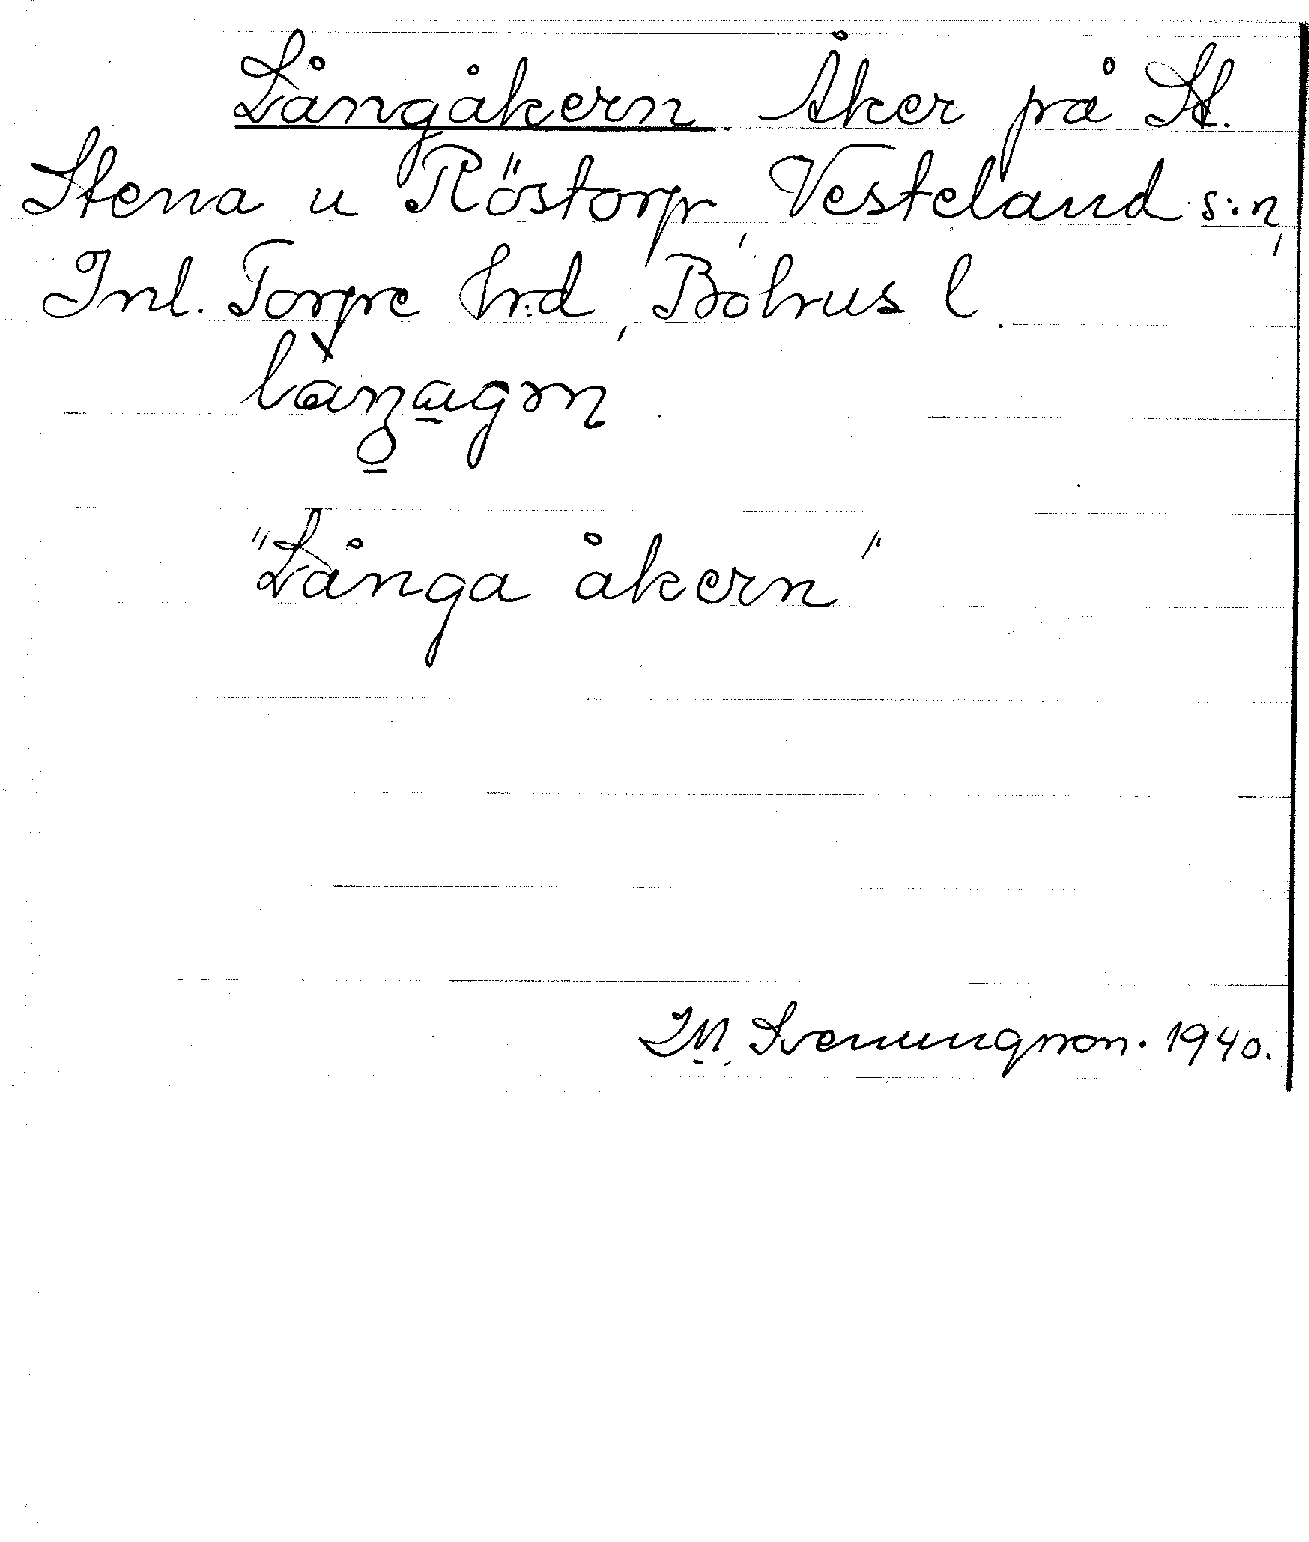 Långåkern. Åker på St.
Stena u Röstorp, Vesteland s:n,
Inl. Torpe hrd, Bohus l.
"Långa åkern"
Svenungson. 1940.